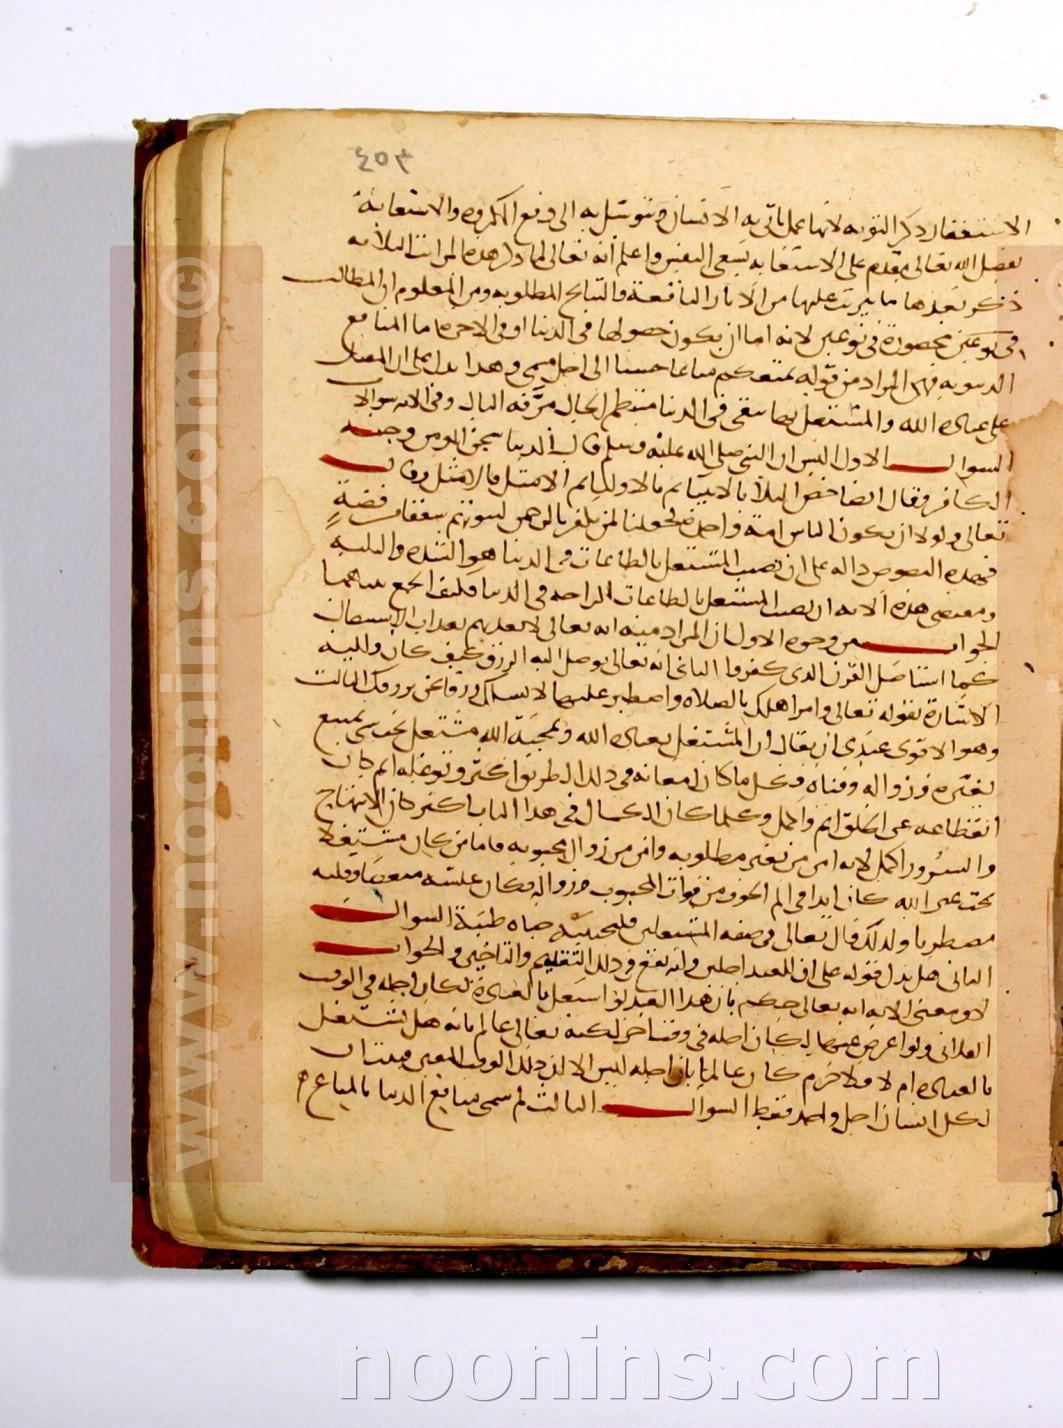 ٤٥٣
الاستغفار ذكر التوبة لانها عمل ياتى به الانسان ويتوسل به الى دفع المكروه والاستعانة
بفضل الله تعالى مقدم على الاستعانة بسعى النفس واعلم انه تعالى لما ذكر هذه المراتب الثلاثة
ذكر بعدها ما يترتب عليها من الاثار النافعة والنتايج المطلوبة ومن المعلوم ان المطالب
محصورة فى نوعين لانه اما ان يكون حصولها فى الدنيا او فى الاخرة اما المنافع
الدنيوية فهى المراد من قوله يمتعكم متاعا حسنا الى اجل مسمى وهذا يدل على ان المقبل
على عبادة الله والمشتغل بها يبقى فى الدنيا منتظم الحال مرفه البال وفى الاية سوالات
السوال الاول اليس ان النبى صلى الله عليه وسلم قال الدنيا سجن المومن وجنة
الكافر وقال ايضا خص البلا بالانبيا ثم بالاوليا ثم الامثل فالامثل وقال
تعالى ولولا ان يكون الناس امة واحدة لجعلنا لمن يكفر بالرحمن لبيوتهم سقفا من فضة
فهذه النصوص دالة على ان نصيب المشتغل بالطاعات فى الدنيا هو الشدة والبلية
ومقتضى هذه الاية ان نصيب المشتغل بالطاعات الراحة فى الدنيا فكيف الجمع بينهما
الجواب من وجوه الاول ان المراد منه انه تعالى لا يعذبهم بعذاب الاستيصال
كما استاصل القرن الذى كفروا الثانى انه تعالى يوصل اليه الرزق كيف كان واليه
الاشارة بقوله تعالى وامر اهلك بالصلاة واصطبر عليها لا نسالك رزقا نحن نرزقك الثالث
وهو الاقوى عندى ان يقال ان المشتغل بعبادة الله وبمحبة الله مشتغل بحب شى يمتنع
تغيره وزواله وفناه فكل ما كان امعانه فى ذلك الطريق اكثر وتوغله اتم كان
انقطاعه عن الخلق اتم واكمل وكلما كان الكمال فى هذا الباب اكثر كان الابتهاج
والسرور اكمل لانه امن من تغير مطلوبه وامن من زوال محبوبه فاما من كان مشتغلا
بحب غير الله كان ابدا فى الم الخوف من فوات المحبوب وزواله فكان عيشه منغصا وقلبه
مضطربا ولذلك قال تعالى فى صفة المشتغلين فلنحيينه حياة طيبة السوال
الثانى هل يدل قوله على ان للعبد اجلين وانه يقع فى ذلك التقديم والتاخير والجواب
لا ومعنى الاية انه تعالى حكم بان هذا العبد لو اشتغل بالعبادة لكان اجله فى الوقت
الفلانى ولو اعرض عنها لكان اجله فى وقت اخر لكنه تعالى عالم بانه هل يشتغل
بالعبادة ام لا فلا جرم كان عالما بان اجله ليس الا فى ذلك الوقت المعين فثبت ان
لكل انسان اجل واحد فقط السوال الثالث لم سمى منافع الدنيا بالمتاع
© www.noonins.com
noonins.com